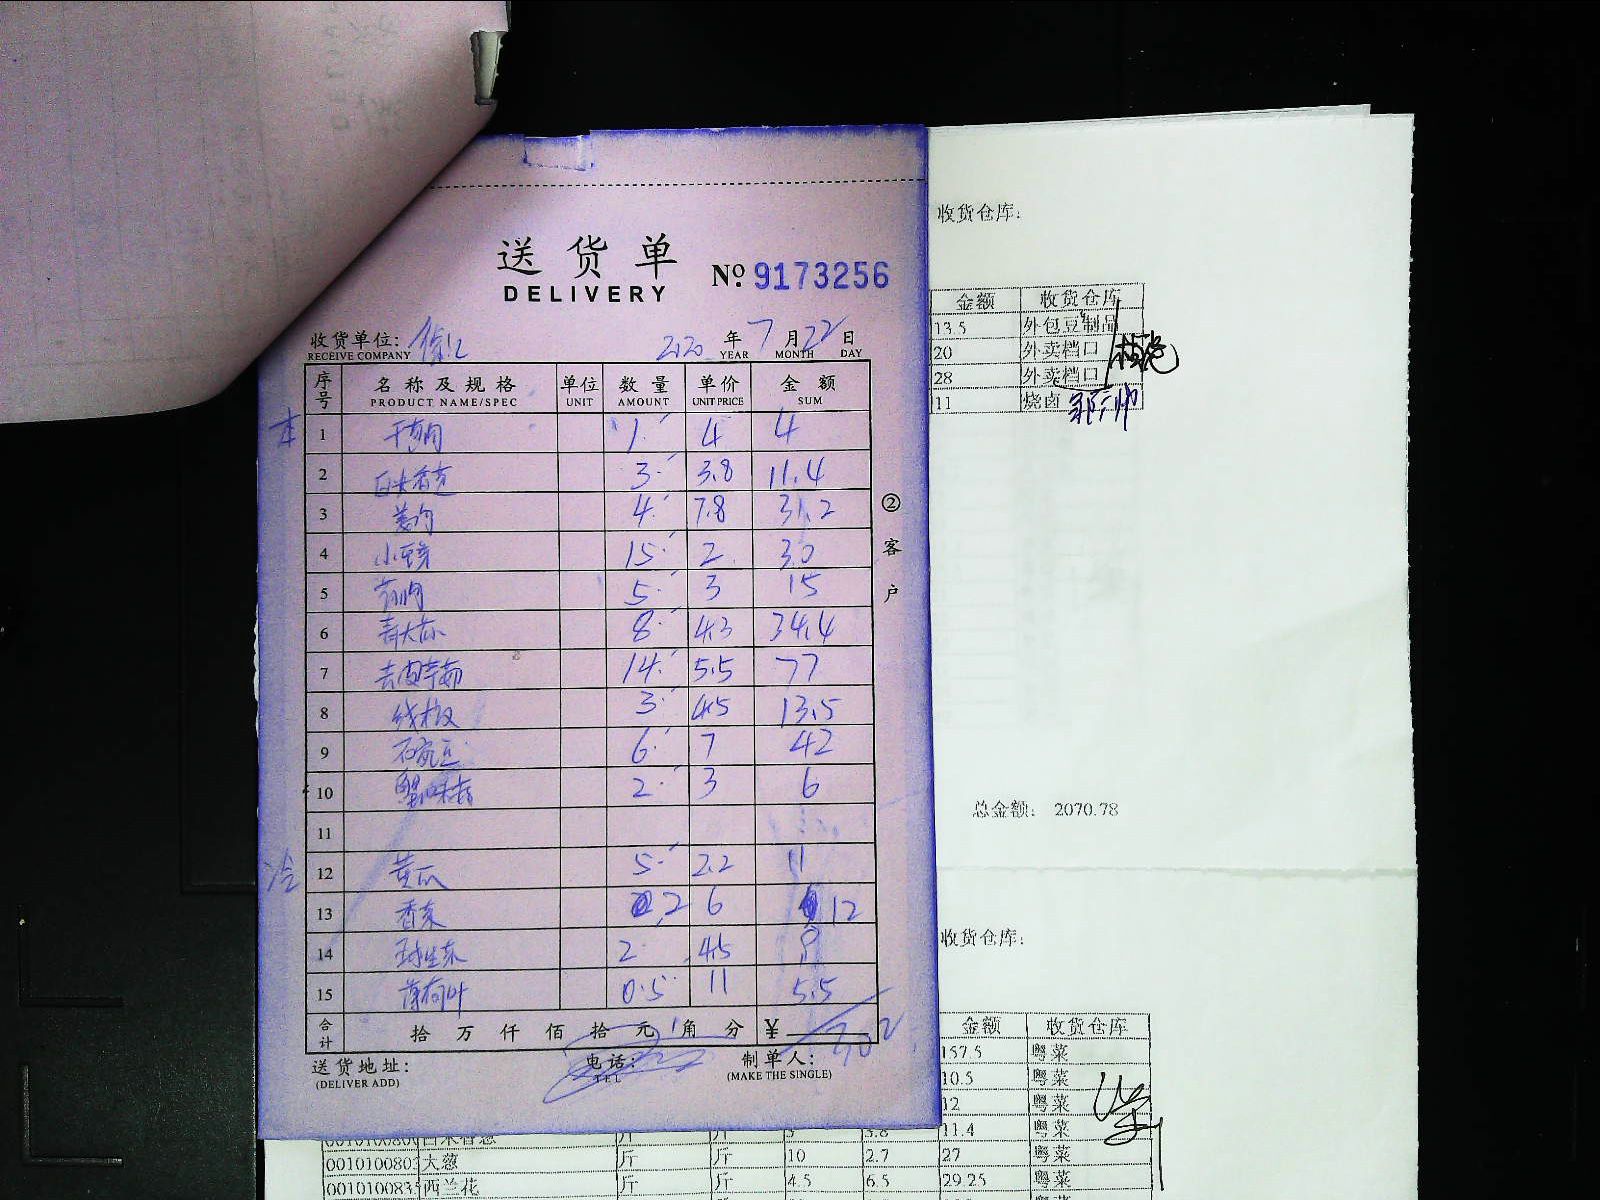 送货单
DELIVERY
№ 9173256
收货单位:
RECEIVE COMPANY
2020 年 7 月 22 日
YEAR MONTH DAY
序号 名称及规格 单位 数量 单价 金额
PRODUCT NAME/SPEC UNIT AMOUNT UNIT PRICE SUM
1 1 4 4
2 白米香葱 3 3.8 11.4
3 姜肉 4 7.8 31.2
4 小 15 2 30
5 5 3 15
6 8 4.3 34.4
7 去皮芋艿 14 5.5 77
8 线椒 3 4.5 13.5
9 豆 6 7 42
10 蟹味菇 2 3 6
11
冷
12 黄瓜 5 2.2 11
13 香菜 2 6 12
14 球生菜 2 4.5 9
15 薄荷叶 0.5 11 5.5
合计 拾 万 仟 佰 拾 元 角 分 ¥ 302
送货地址: 电话: 制单人:
(DELIVER ADD) TEL (MAKE THE SINGLE)
②客户
收货仓库:
金额 收货仓库
13.5 外包豆制品
20 外卖档口
28 外卖档口
11 烧卤
总金额: 2070.78
收货仓库:
金额 收货仓库
157.5 粤菜
10.5 粤菜
12 粤菜
白米香葱 斤 斤 3 3.8 11.4 粤菜
0010100803 大葱 斤 斤 10 2.7 27 粤菜
0010100835 西兰花 斤 斤 4.5 6.5 29.25 粤菜